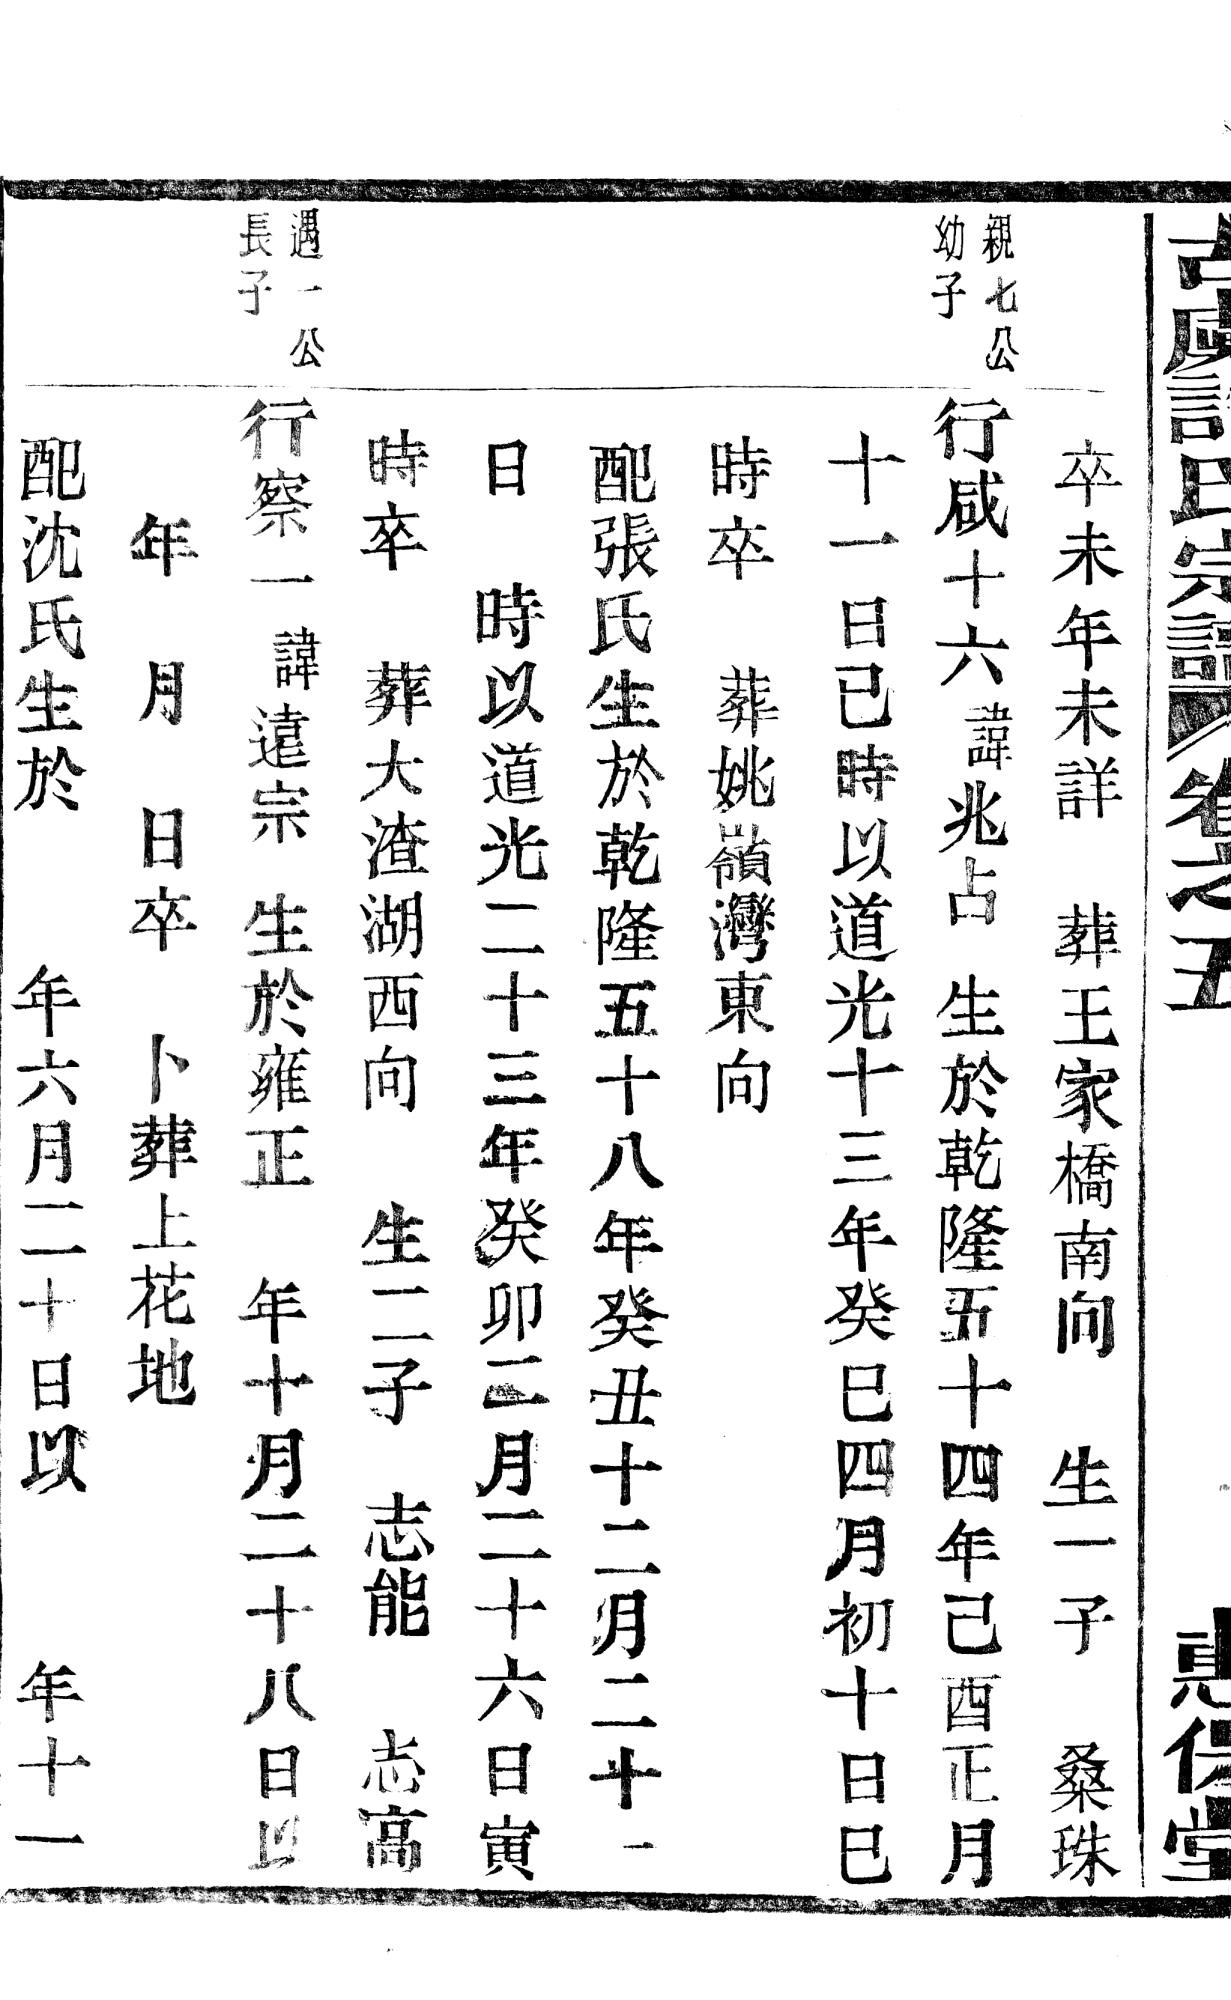 古虞許氏宗譜 卷之五 惠倫堂
卒未年未詳 葬王家橋南向 生一子 桑珠
親七公
幼子
行咸十六諱兆占 生於乾隆五十四年己酉正月
十一日巳時以道光十三年癸巳四月初十日巳
時卒 葬姚嶺灣東向
配張氏生於乾隆五十八年癸丑十二月二十一
日 時以道光二十三年癸卯二月二十六日寅
時卒 葬大渣湖西向 生二子 志能 志高
遇一公
長子
行察一諱遠宗 生於雍正 年十月二十八日以
年 月 日卒 卜葬上花地
配沈氏生於 年六月二十日以 年十一